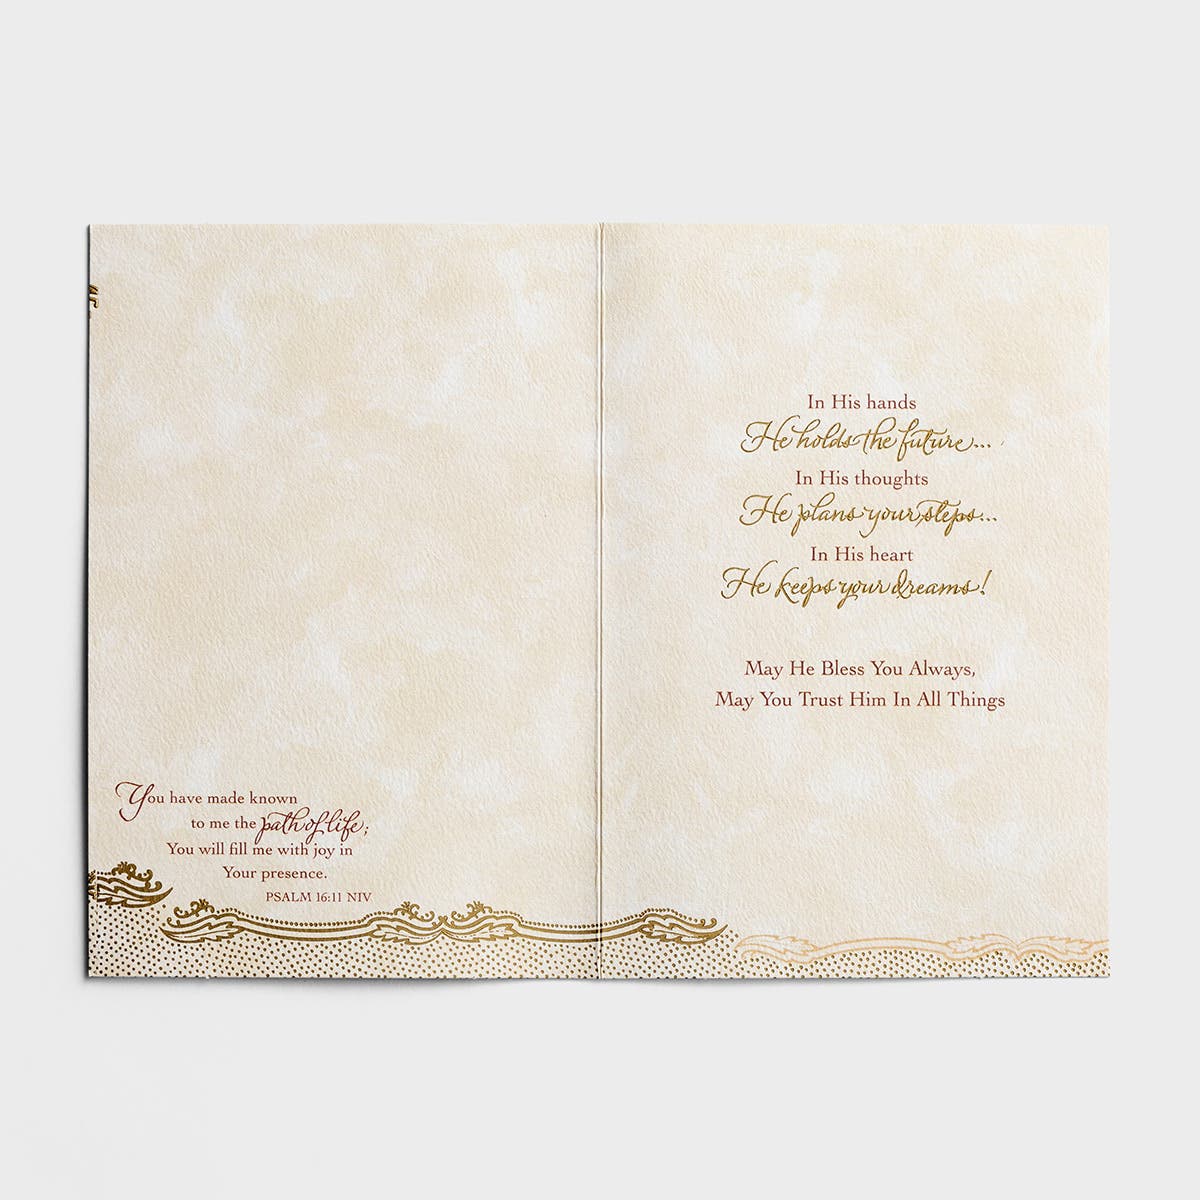 You have made known
to me the path of life;
You will fill me with joy in
Your presence.
PSALM 16:11 NIV
In His hands
He holds the future...
In His thoughts
He plans your steps...
In His heart
He keeps your dreams!
May He Bless You Always,
May You Trust Him In All Things